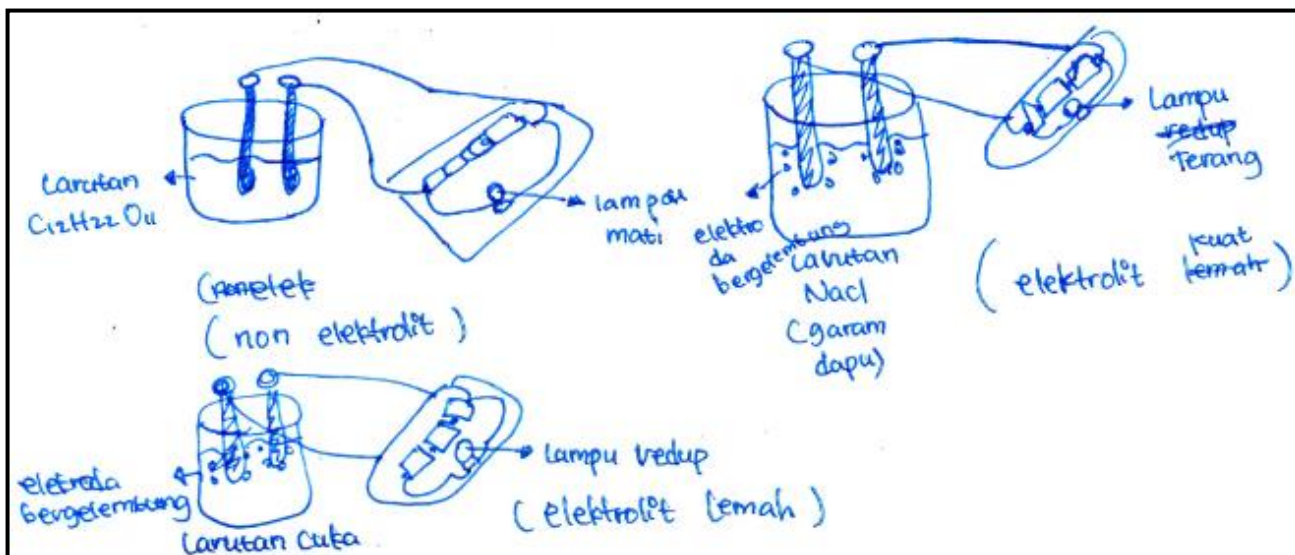 Larutan
C12H22O11
lampu
mati
(nonelek
(non elektrolit)
elektro
da
bergelembung
Larutan
Nacl
(garam
dapu)
Lampu
redup
Terang
kuat
(elektrolit lemah)
eletroda
bergelembung
Larutan Cuka
Lampu redup
(elektrolit Lemah)